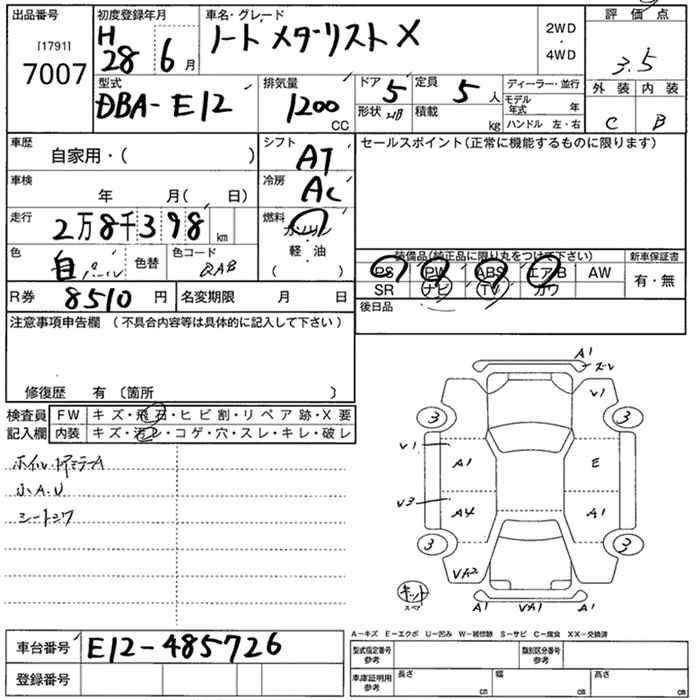 出品番号
[1791]
7007
初度登録年月
H
28 6月
車名・グレード
ノート メダリスト X
2WD
・
4WD
評価点
3.5
外装 内装
C B
型式
DBA-E12
排気量
1200
CC
ドア 5
定員 5人
形状 HB
積載 kg
ディーラー・並行
モデル年式 年
ハンドル 左・右
車歴
自家用・( )
シフト
AT
セールスポイント(正常に機能するものに限ります)
車検
年 月( 日)
冷房
AC
走行
2万8千398km
燃料
ガソリン
軽・油
( )
色
白パール
色替
色コード
QAB
装備品(純正品に限り丸をつけて下さい)
PS PW ABS エアB AW
SR ナビ TV カワ
新車保証書
有・無
R券 8510円
名変期限 月 日
後日品
注意事項申告欄 (不具合内容等は具体的に記入して下さい)
修復歴 有〔箇所 〕
検査員
記入欄
FW キズ・飛石・ヒビ割・リペア跡・X要
内装 キズ・汚レ・コゲ・穴・スレ・キレ・破レ
小A.U
シートシワ
A1
スレ
V1
3
3
V1
A1
E
V3
A4
A1
3
3
VA2
キット
スペア
A1
VA1
A1
A-キズ E-エクボ U-凹み W-補修跡 S-サビ C-腐食 XX-交換済
車台番号 E12-485726
登録番号
型式指定番号
参考
類別区分番号
参考
車庫証明用
参考
長さ cm
幅 cm
高さ cm